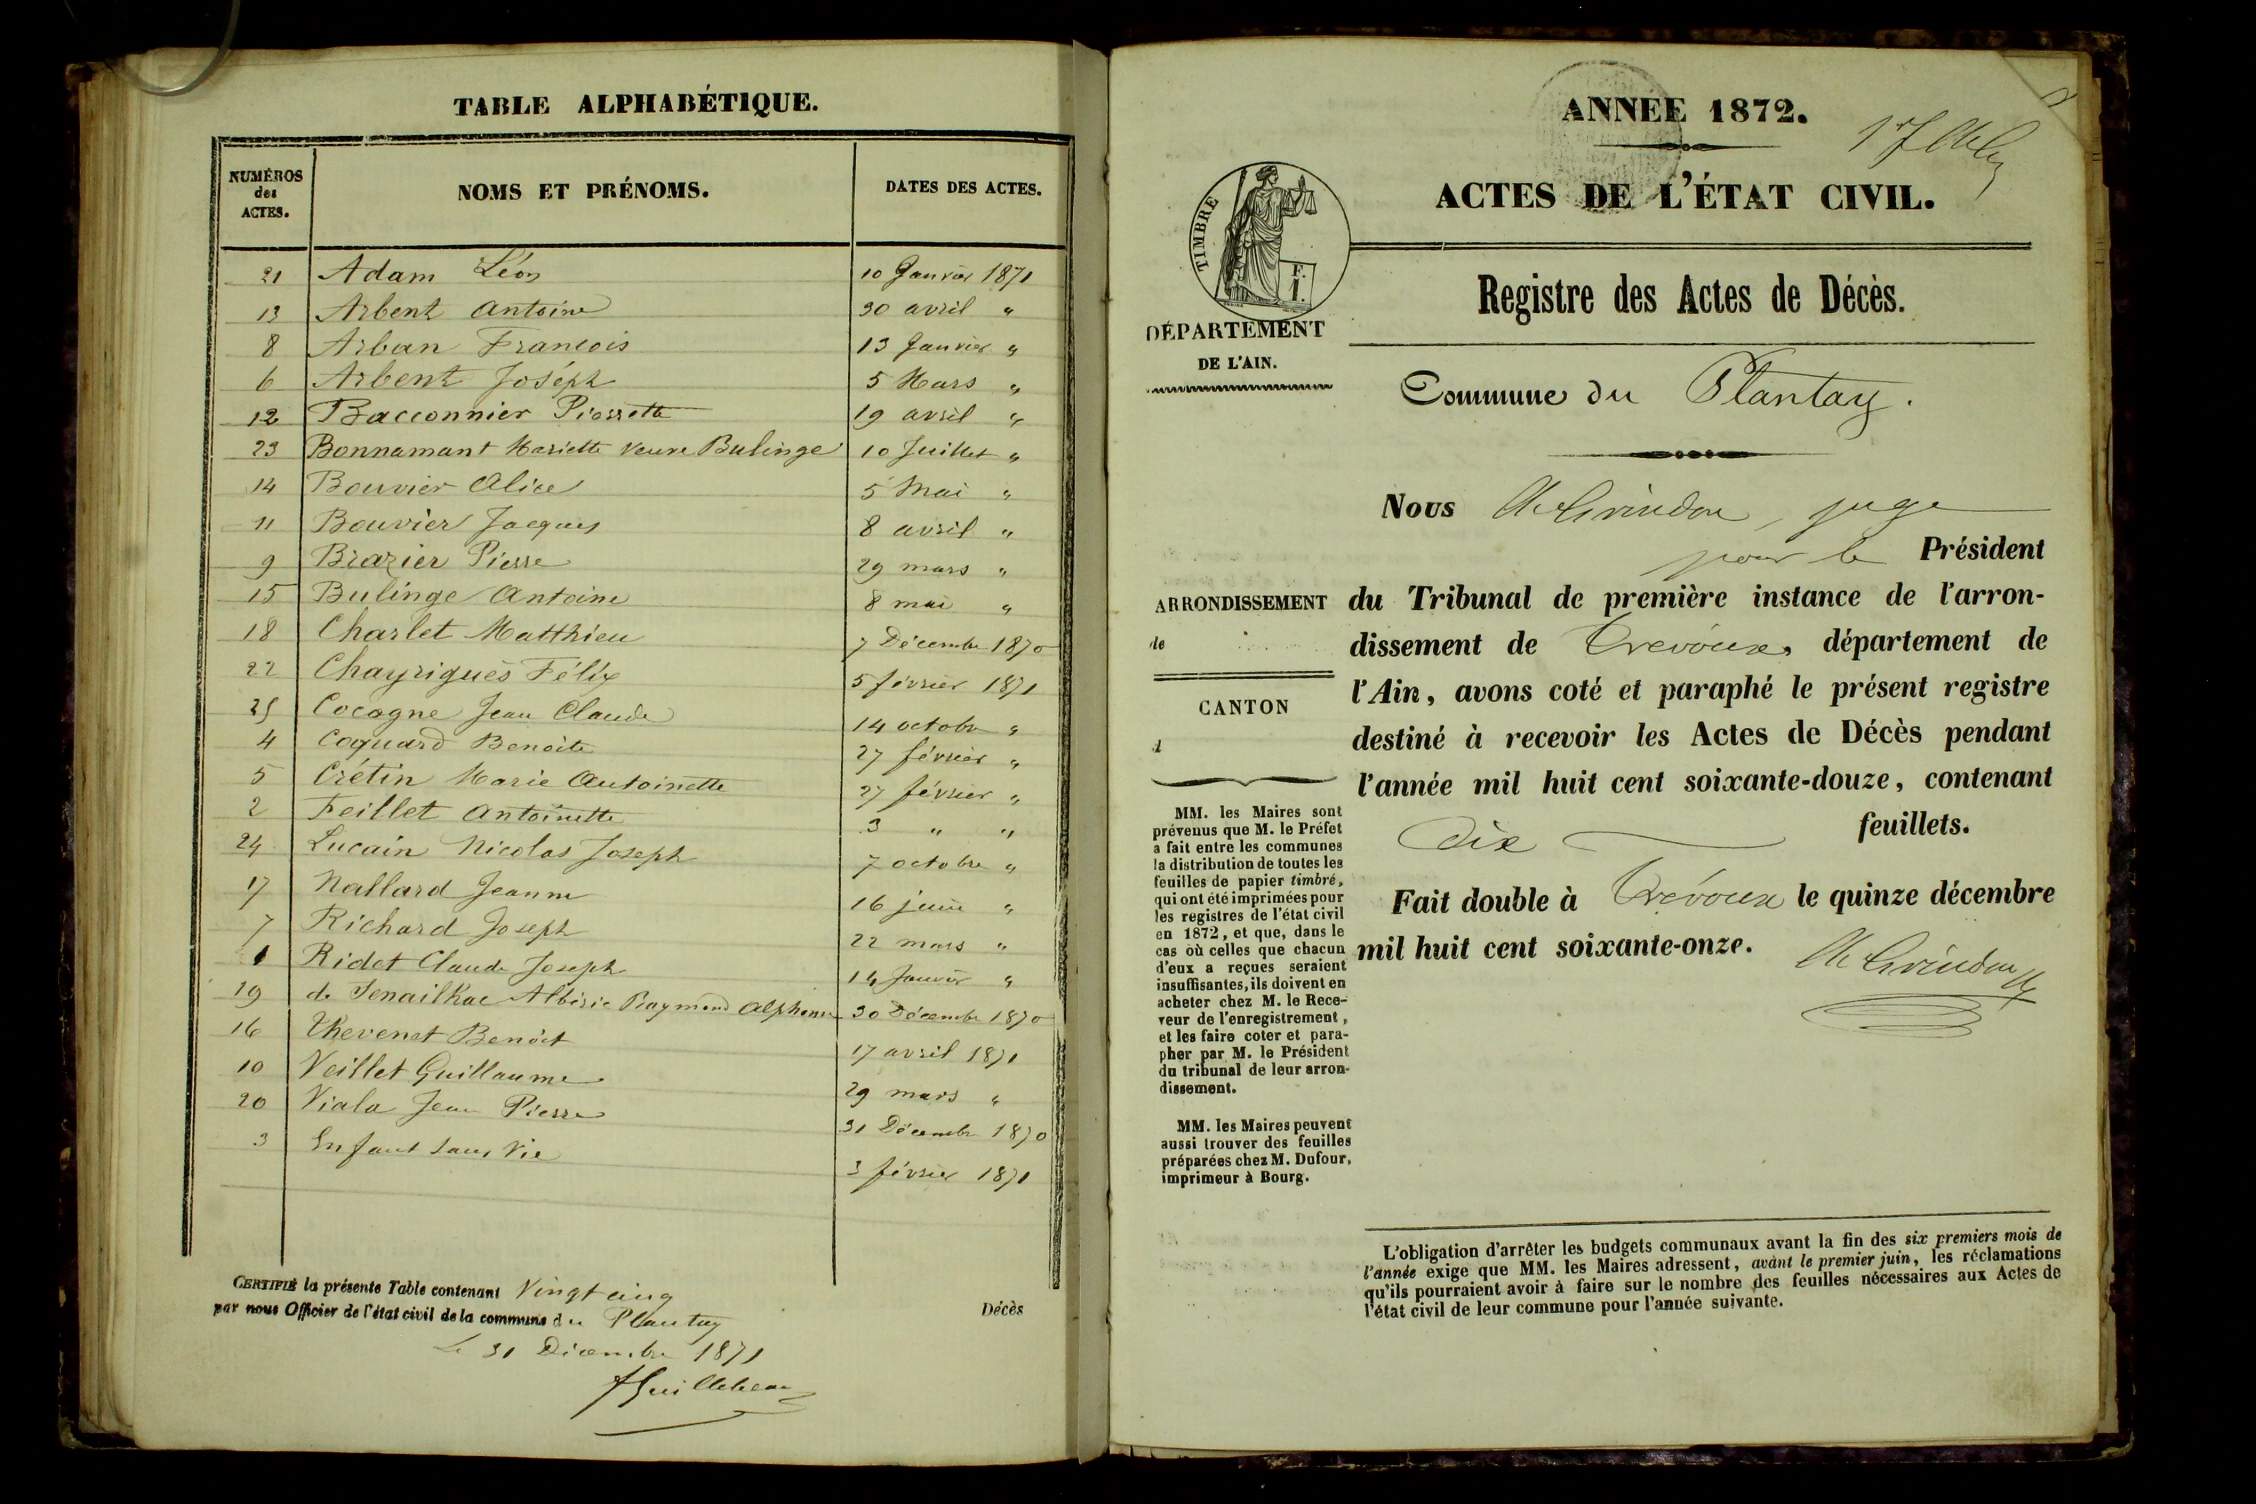 TABLE ALPHABÉTIQUE.
NUMÉROS des ACTES. NOMS ET PRÉNOMS. DATES DES ACTES.
21 Adam Léon 10 Janvier 1871
13 Arbent Antoine 30 avril "
8 Arban François 13 Janvier "
6 Arbent Joséph 5 Mars "
12 Bacconnier Pierrette 19 avril "
23 Bonnamant Mariette veuve Bulinge 10 Juillet "
14 Bouvier Alice 5 Mai "
11 Bouvier Jacques 8 avril "
9 Brazier Pierre 29 mars "
15 Bulinge Antoine 8 mai "
18 Charlet Matthieu 7 Décembre 1870
22 Chayrigues Félix 5 février 1871
25 Cocogne Jean Claude 14 octobre "
4 Coquard Benoite 27 février "
5 Crétin Marie Antoinette 27 février "
2 Feillet Antoinette 3 " "
24 Lucain Nicolas Joseph 7 octobre "
17 Nallard Jeanne 16 juin "
7 Richard Joseph 22 mars "
1 Ridet Claude Joseph 14 Janvier "
19 de Senailhac Albéric Raymond Alphonse 30 Décembre 1870
16 Thevenet Benoit 17 avril 1871
10 Veillet Guillaume 29 mars "
20 Viala Jean Pierre 31 Décembre 1870
3 Enfant sans Vie 3 février 1871
CERTIFIÉ la présente Table contenant Vingt cinq Décès
par nous Officier de l'état civil de la commune du Plantay
Le 31 Décembre 1871
ANNEE 1872.
ACTES DE L'ÉTAT CIVIL.
TIMBRE
F.
I.
DÉPARTEMENT
DE L'AIN.
Registre des Actes de Décès.
Commune du Plantay.
Nous Grindon, juge
pour le Président
du Tribunal de première instance de l'arron-
dissement de Trevoux, département de
l'Ain, avons coté et paraphé le présent registre
destiné à recevoir les Actes de Décès pendant
l'année mil huit cent soixante-douze, contenant
dix feuillets.
Fait double à Trévoux le quinze décembre
mil huit cent soixante-onze.
Grindon
ARRONDISSEMENT
de
CANTON
d
MM. les Maires sont
prévenus que M. le Préfet
a fait entre les communes
la distribution de toutes les
feuilles de papier timbré,
qui ont été imprimées pour
les registres de l'état civil
en 1872, et que, dans le
cas où celles que chacun
d'eux a reçues seraient
insuffisantes, ils doivent en
acheter chez M. le Rece-
veur de l'enregistrement,
et les faire coter et para-
pher par M. le Président
du tribunal de leur arron-
dissement.
MM. les Maires peuvent
aussi trouver des feuilles
préparées chez M. Dufour,
imprimeur à Bourg.
L'obligation d'arrêter les budgets communaux avant la fin des six premiers mois de
l'année exige que MM. les Maires adressent, avant le premier juin, les réclamations
qu'ils pourraient avoir à faire sur le nombre des feuilles nécessaires aux Actes de
l'état civil de leur commune pour l'année suivante.